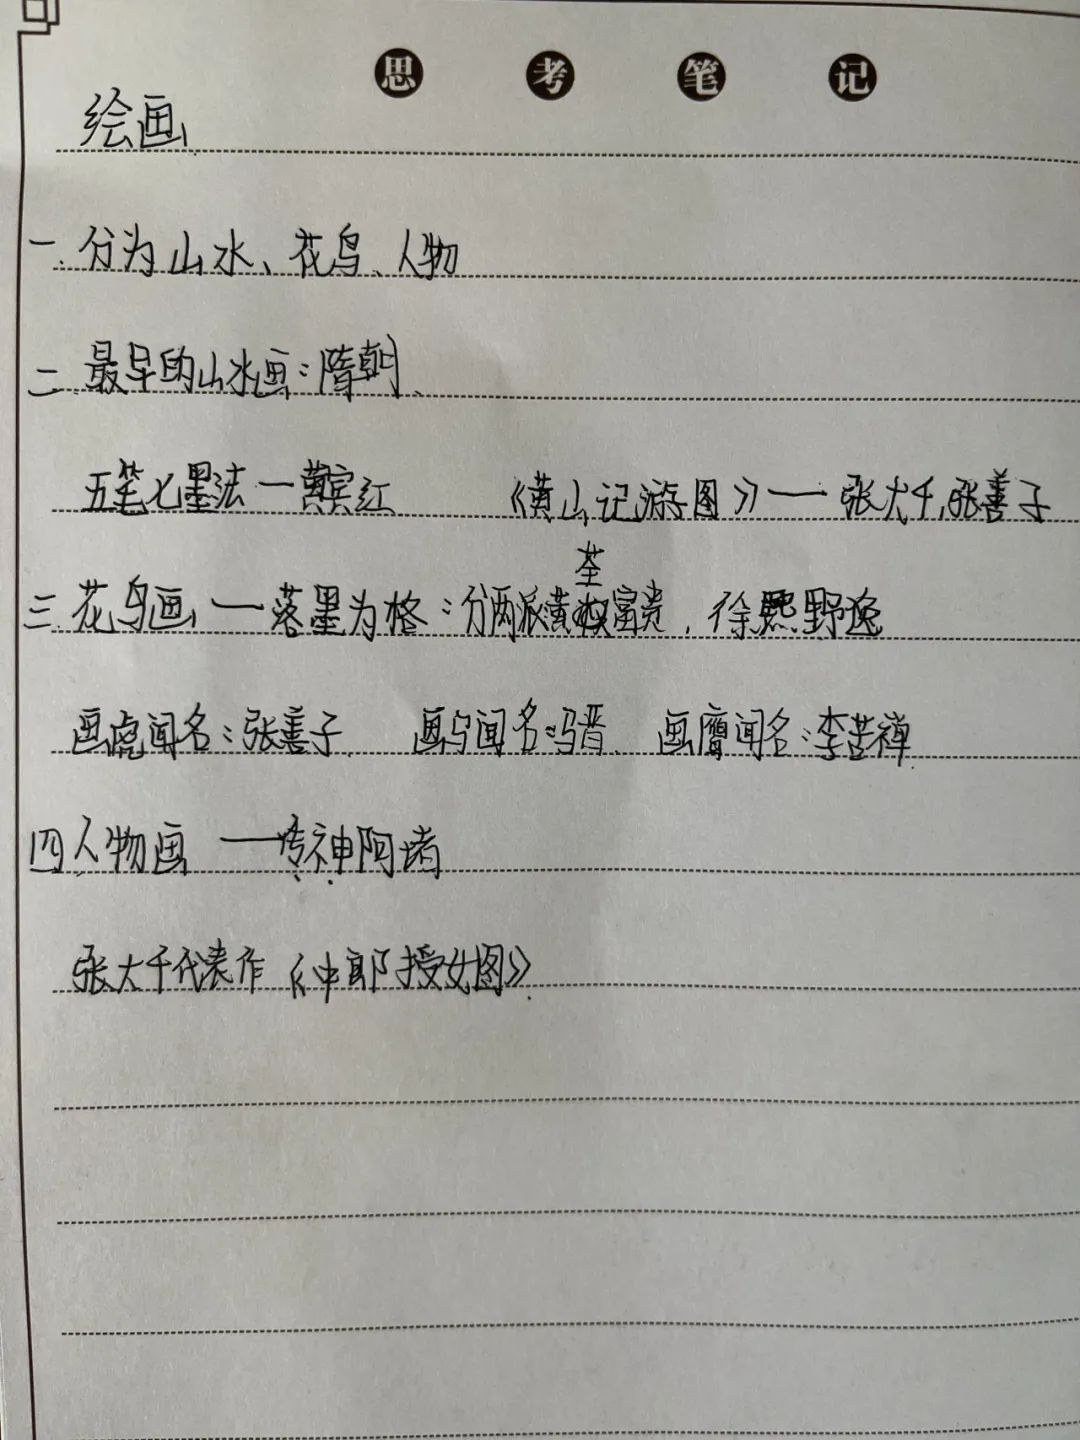 思考笔记
绘画
一.分为山水、花鸟、人物
二.最早的山水画：隋朝.
五笔七墨法一黄宾红 《黄山记游图》——张大千,张善子
荃
三.花鸟画——落墨为格：分两派黄富贵，徐熙野逸
画虎闻名：张善子. 画闻名:马晋. 画鹰闻名:李苦禅
四人物画——传神阿堵
张大千代表作《中郎授女图》.